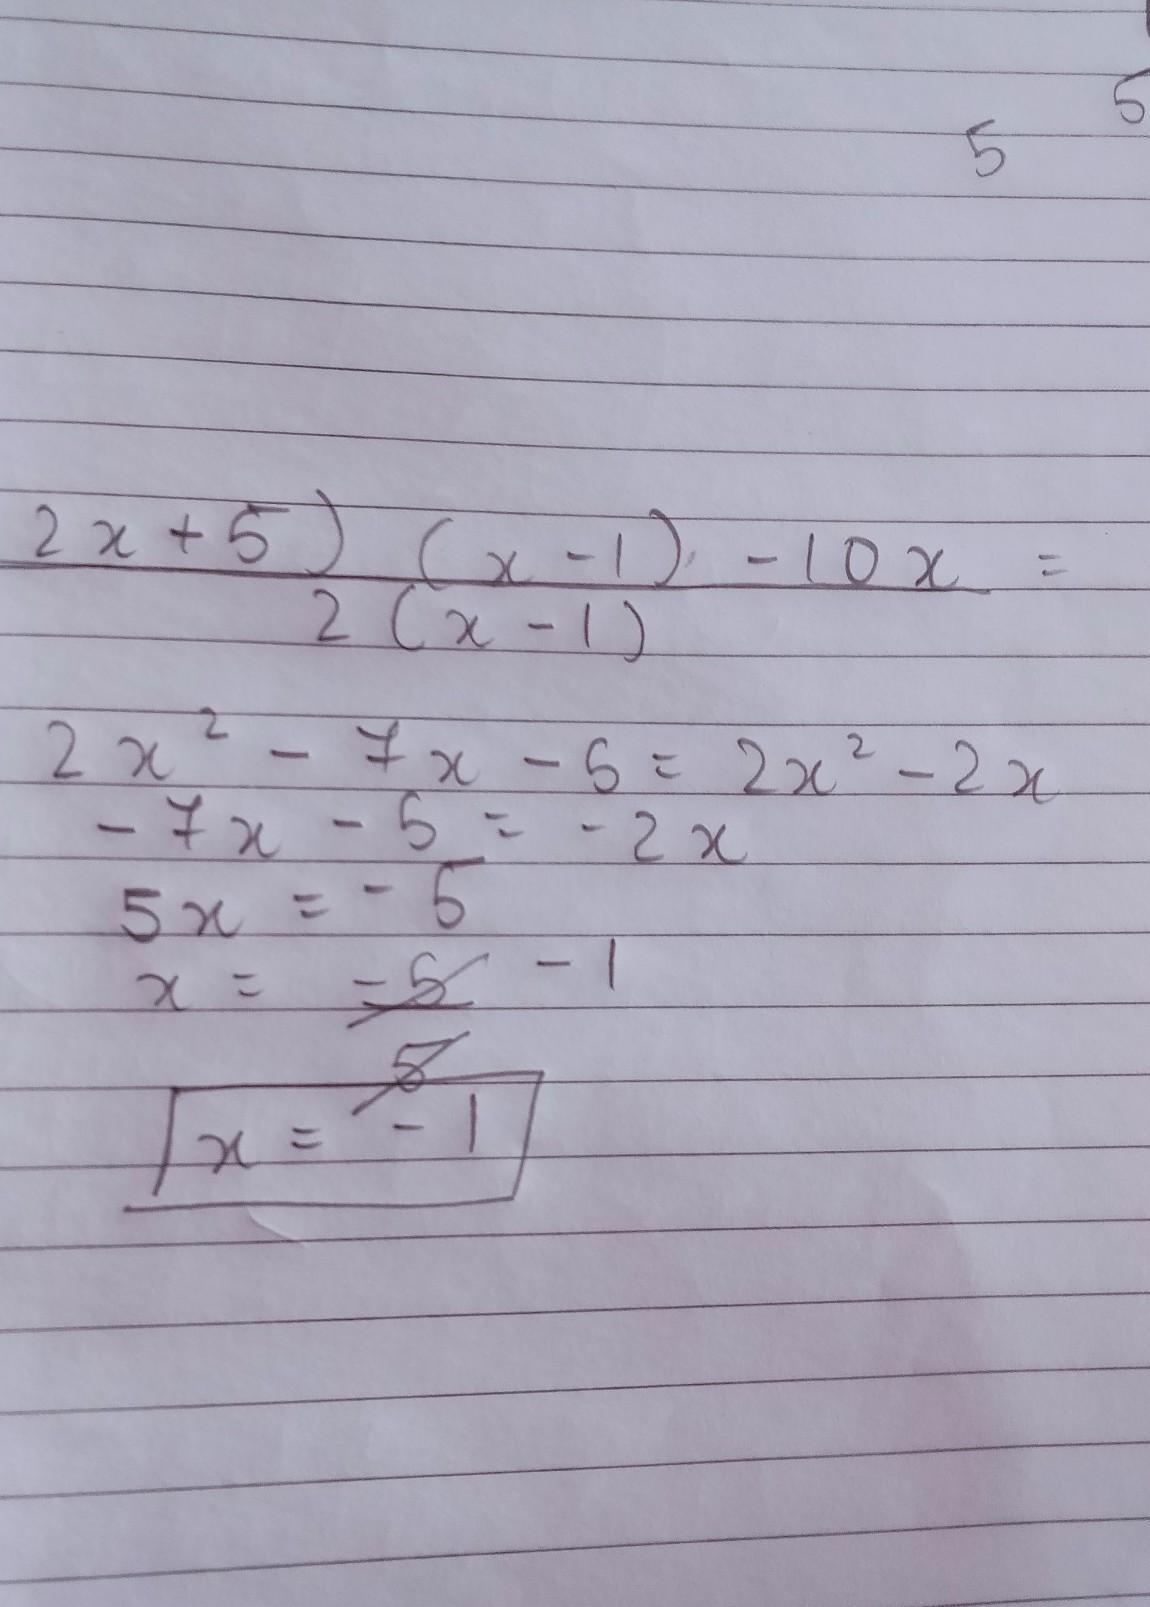 5
5
2x + 5) (x - 1) - 10x =
2 (x - 1)
2x² - 7x - 5 = 2x² - 2x
- 7x - 5 = - 2x
5x = - 5
x = -5 - 1
5
x = - 1